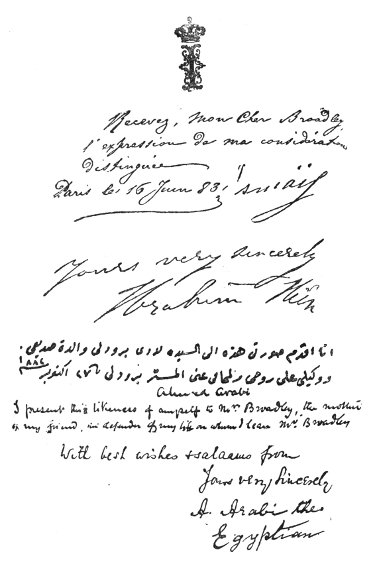 Recevez, Mon Cher Broadley
l'expression de ma considération
distinguée
Paris le 16 Juin 83.
Yours very sincerely
Ibrahim
انا اقدم صورتى هذه الى السيده لادى برودلى والدة صديقى
ووكيلى على روحى المستر برودلى اكتوبر
Ahmed Arabi
I present this likeness of myself to Mrs. Broadley, the mother
of my friend, defender of my life Mr. Broadley
With best wishes & salaams from
Yours very Sincerely
A. Arabi the
Egyptian